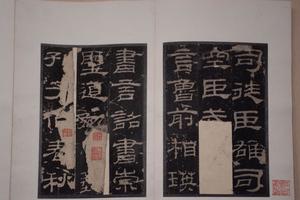 司徒臣雄司
空臣戒
言魯前相瑛
書言詔書崇
聖道勉
孔子作春秋